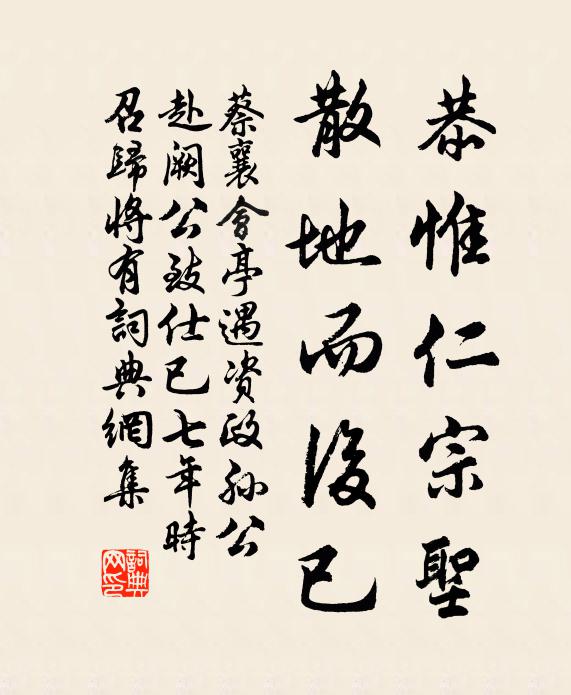 恭惟仁宗聖
散地而後已
蔡襄會亭遇資政孙公
赴阙公致仕已七年時
召歸將有詞典網集
詞典网印